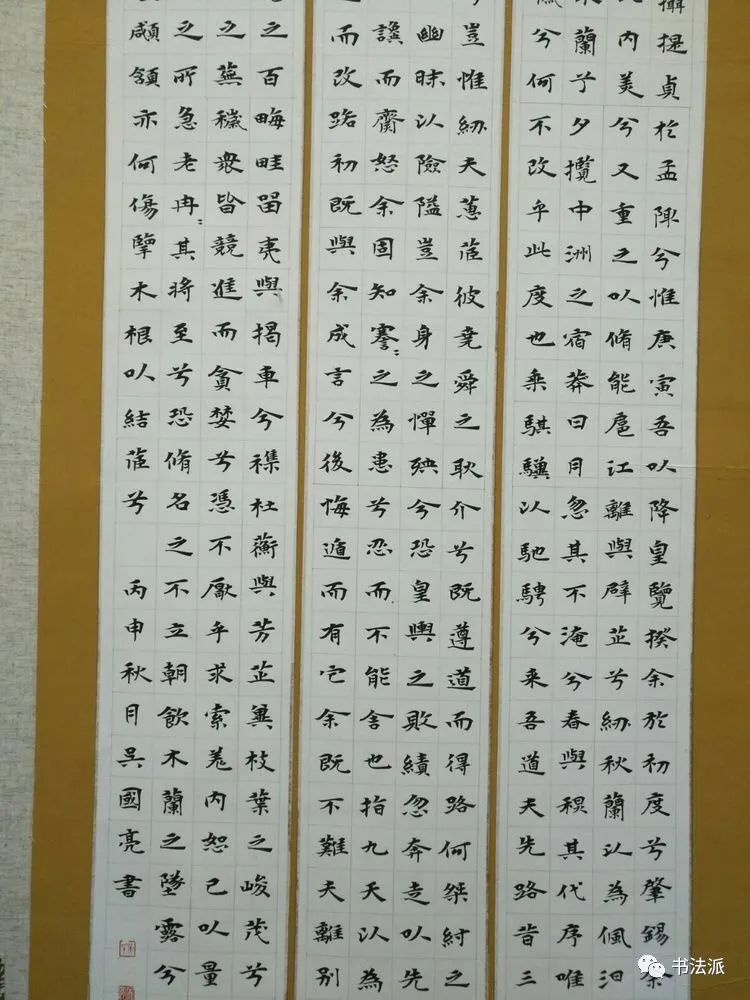 攝提貞於孟陬兮惟庚寅吾以降皇覽揆余於初度兮肇錫余
內美兮又重之以脩能扈江離與辟芷兮紉秋蘭以為佩汩
蘭兮夕攬中洲之宿莽日月忽其不淹兮春與其代序唯
兮何不改乎此度也乘騏驥以馳騁兮来吾道夫先路昔三
豈惟紉夫蕙茝彼堯舜之耿介兮既遵道而得路何桀紂之
幽昧以險隘豈余身之憚殃兮恐皇輿之敗績忽奔走以先
讒而齌怒余固知謇〻之為患兮忍而不能舍也指九天以為
而改路初既與余成言兮後悔遁而有它余既不難夫離別
之百畮畦留夷與揭車兮襍杜蘅與芳芷冀枝葉之峻茂兮
之蕪穢衆皆競進而貪婪兮憑不厭乎求索羌內恕己以量
之所急老冉〻其將至兮恐脩名之不立朝飲木蘭之墜露兮
顑頷亦何傷擥木根以結茝兮 丙申秋月吳國亮書
书法派